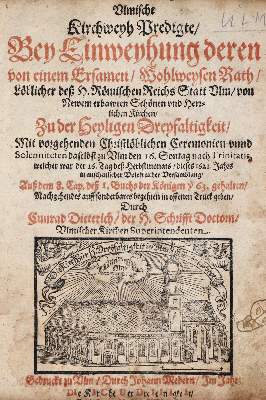 Ulmische
Kirchweyh Predigte/
Bey Einweyhung deren
von einem Ersamen/ Wohlweysen Rath/
Löblicher deß H. Römischen Reichs Statt Ulm/ von
Newem erbawten Schönen und Herr-
lichen Kirchen/
Zu der Heyligen Dreyfaltigkeit/
Mit vorgehenden Christlöblichen Ceremonien unnd
Solenniteten daselbst zu Ulm den 16. Sontag nach Trinitatis,
welcher war der Tag deß Herbstmonats/ dieses 1621 Jahrs
in Versamblung/
Auß dem 8. Cap. deß 1. Buchs der Königen ℣ 63. gehalten/
Nachgehendes auff sonderbares begehren in offenen Truck geben/
Durch
Cunrad Dieterich/ der H. Schrifft Doctorn/
Ulmischer Kirchen Superintendenten.
Gedruckt zu Ulm/ Durch Johann Medern/ Im Jahr: